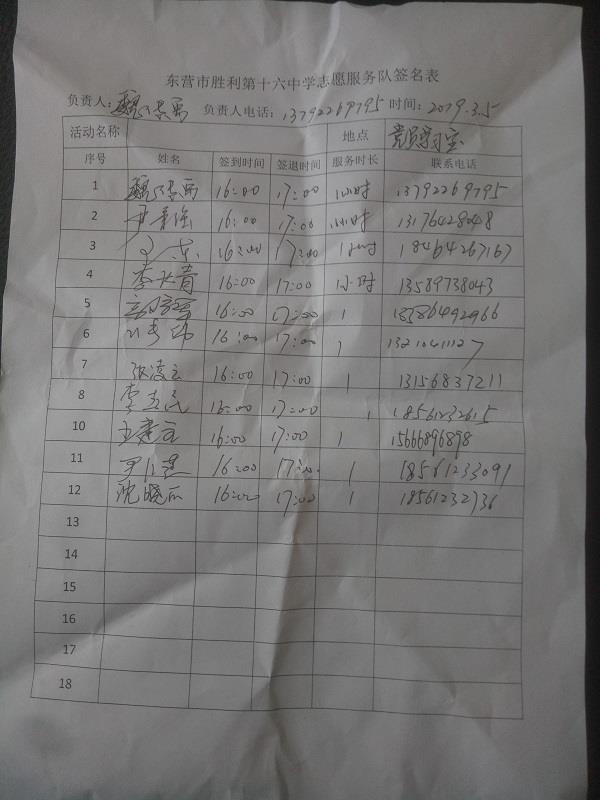 东营市胜利第十六中学志愿服务队签名表
负责人: 负责人电话: 13792269795 时间: 2019.3.5
活动名称 地点 党员学习室
序号 姓名 签到时间 签退时间 服务时长 联系电话
1 16:00 17:00 1小时 13792269795
2 16:00 17:00 1小时 13176428048
3 16:00 17:00 1小时 18464267167
4 16:00 17:00 1小时 13589738043
5 16:00 17:00 1
6 16:00 17:00 1 13210411127
7 张凌云 16:00 17:00 1 13156837211
8 16:00 17:00 1 18561232615
10 王建 16:00 17:00 1 15666896898
11 16:00 17:00 1 18561233091
12 沈晓 16:00 17:00 1 18561232736
13
14
15
16
17
18